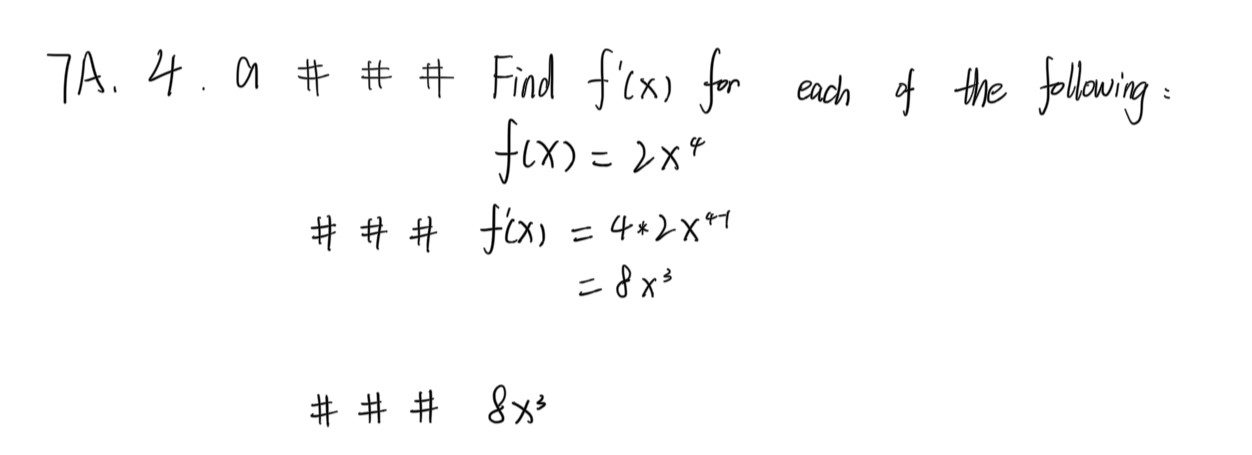 7A. 4. a # # # Find f'(x) for each of the following:
f(x) = 2x⁴
# # # f'(x) = 4*2x⁴⁻¹
= 8x³
# # # 8x³